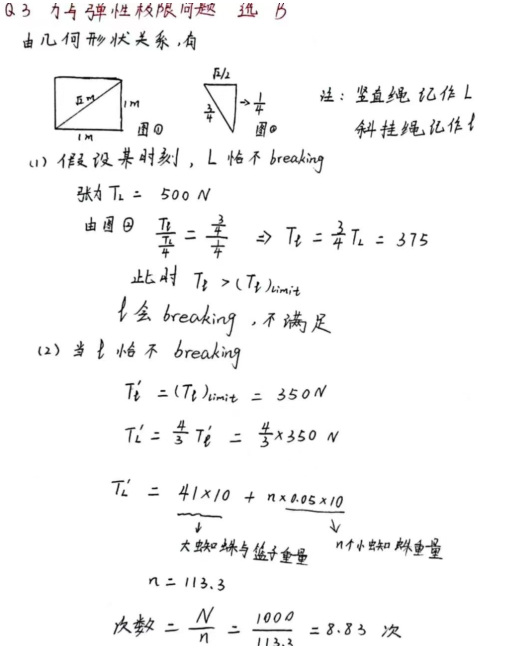 Q3 力与弹性极限问题 选 B
由几何形状关系,有
√2m 1m 1m 图①
√2/2 3/4 → 1/4 图②
注: 竖直绳记作 L
斜挂绳记作 l
(1) 假设某时刻, L 恰不 breaking
张力 T_L = 500 N
由图② T_l / (T_L/4) = (3/4) / (1/4) ⇒ T_l = 3/4 T_L = 375
此时 T_l > (T_l)limit
l 会 breaking, 不满足
(2) 当 l 恰不 breaking
T_l' = (T_l)limit = 350N
T_L' = 4/3 T_l' = 4/3 × 350 N
T_L' = 41×10 + n×0.05×10
↓ ↓
大蜘蛛与篮子重量 n个小蜘蛛重量
n = 113.3
次数 = N/n = 1000/113.3 = 8.83 次